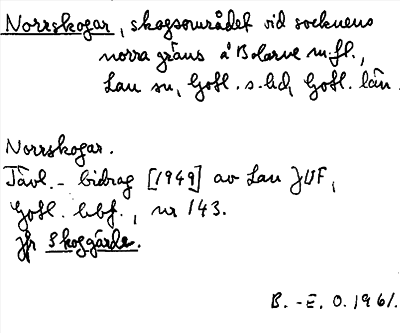 Norrskogar, skogsområdet vid socknens
norra gräns å Bolarve m.fl.,
Lau sn, Gotl. s. hd, Gotl. län.
Norrskogar.
Tävl.-bidrag [1949] av Lau JUF,
Gotl. hbf., nr 143.
Jfr Skoggärde.
B.-E. O. 1961.